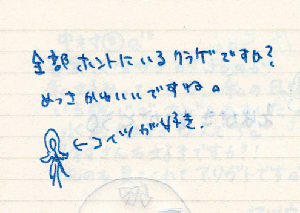 全部ホントにいるクラゲですか?
めっさかわいいですね。
←コイツが好き.